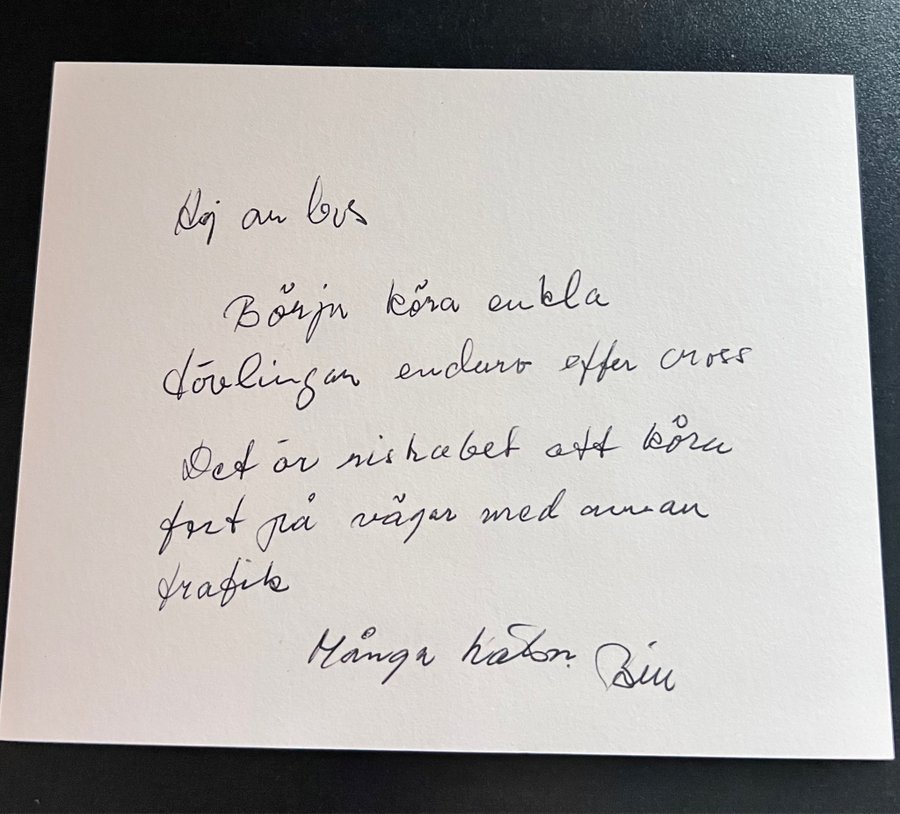 Hej
Börja köra enkla
tävlingar enduro eller cross
Det är riskabelt att köra
fort på vägar med annan
trafik
Många